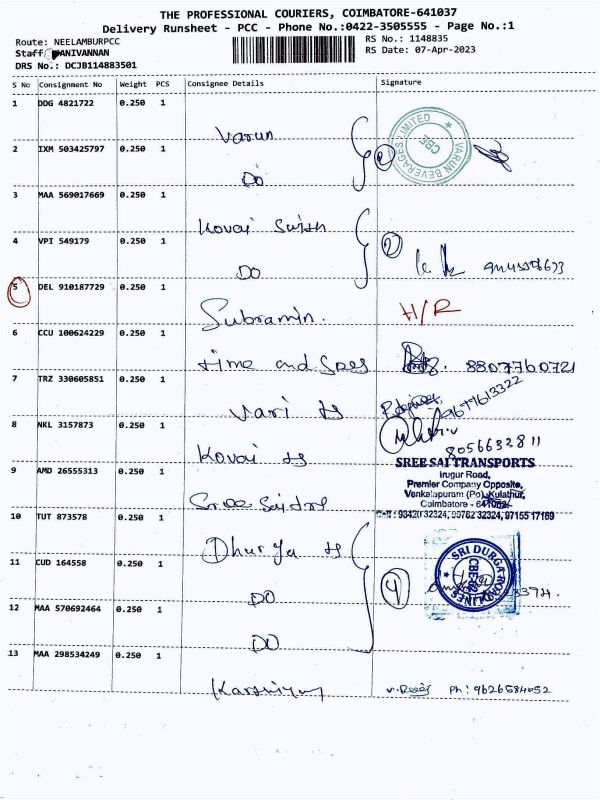 THE PROFESSIONAL COURIERS, COIMBATORE-641037
Delivery Runsheet - PCC - Phone No.:0422-3505555 - Page No.:1
Route: NEELAMBURPCC
RS No.: 1148835
Staff: MANIVANNAN
RS Date: 07-Apr-2023
DRS No.: DCJB114883501
S No Consignment No Weight PCS Consignee Details Signature
1 DDG 4821722 0.250 1 Varun
VARUN BEVERAGES LIMITED CBE
2 IXM 503425797 0.250 1 DO
2
3 MAA 569017669 0.250 1 Kovai
4 VPI 549179 0.250 1 DO
2
5 DEL 910187729 0.250 1 Subramin. H/R
6 CCU 100624229 0.250 1 time and 8807760721
7 TRZ 330605851 0.250 1 9677613322
8 NKL 3157873 0.250 1 Kovai 8056632811
9 AMD 26555313 0.250 1 Sree Sai
SREE SAI TRANSPORTS
Irugur Road,
Premier Company Opposite,
Venkatapuram (Po), Kulathur,
Coimbatore - 641062.
Cell : 93420 32324, 99762 32324, 97155 17169
10 TUT 873578 0.250 1
11 CUD 164558 0.250 1 DO
SRI DURGA ROADLINES
4
12 MAA 570692464 0.250 1 DO
13 MAA 298534249 0.250 1 Ph: 9626584052